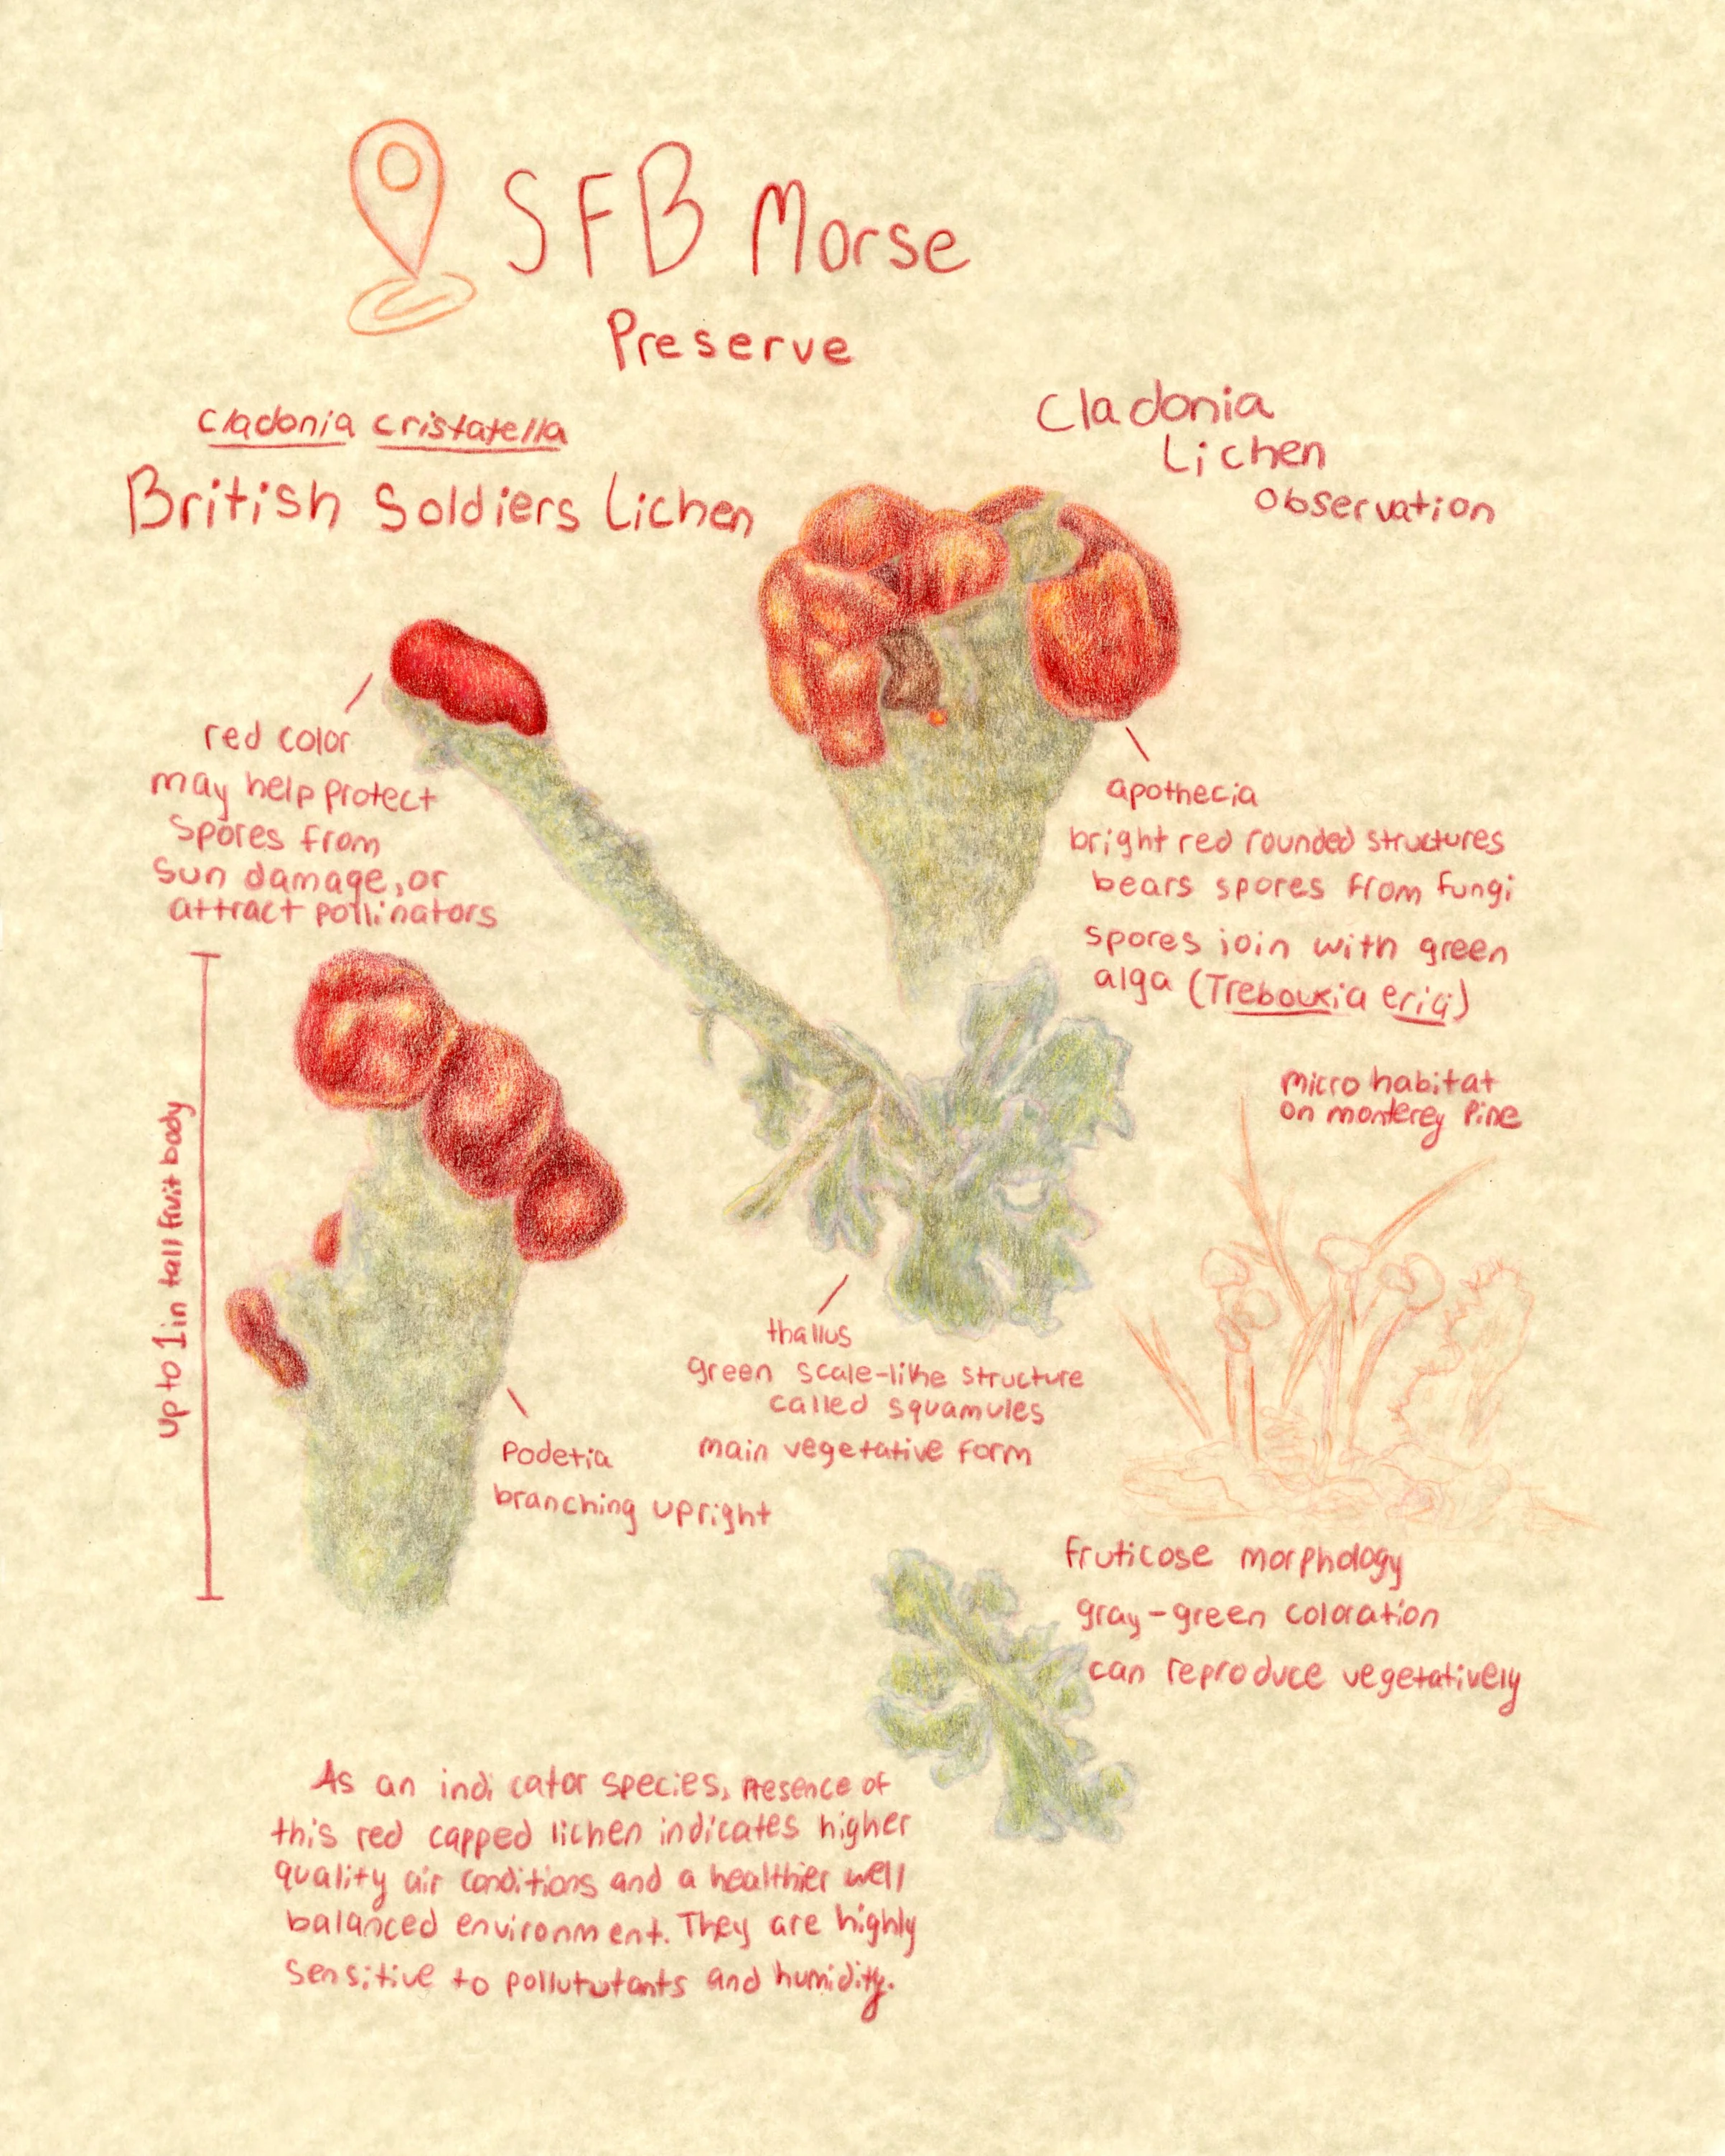 SFB Morse
Preserve
Cladonia cristatella
British Soldiers Lichen
Cladonia
Lichen
Observation
red color
may help protect
spores from
sun damage, or
attract pollinators
apothecia
bright red rounded structures
bears spores from fungi
spores join with green
alga (Trebouxia erici)
up to 1 in tall fruit body
micro habitat
on monterey pine
thallus
green scale-like structure
called squamules
main vegetative form
Podetia
branching upright
fruticose morphology
gray-green coloration
can reproduce vegetatively
As an indicator species, presence of
this red capped lichen indicates higher
quality air conditions and a healthier well
balanced environment. They are highly
sensitive to pollututants and humidity.